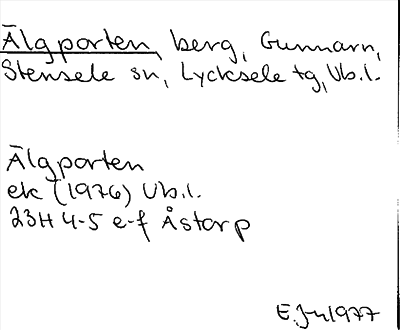 Älgporten, berg, Gunnarn,
Stensele sn, Lycksele tg, Vb.l.
Älgporten
ek (1976) Vb.l.
23H 4-5 e-f Åstorp
1977